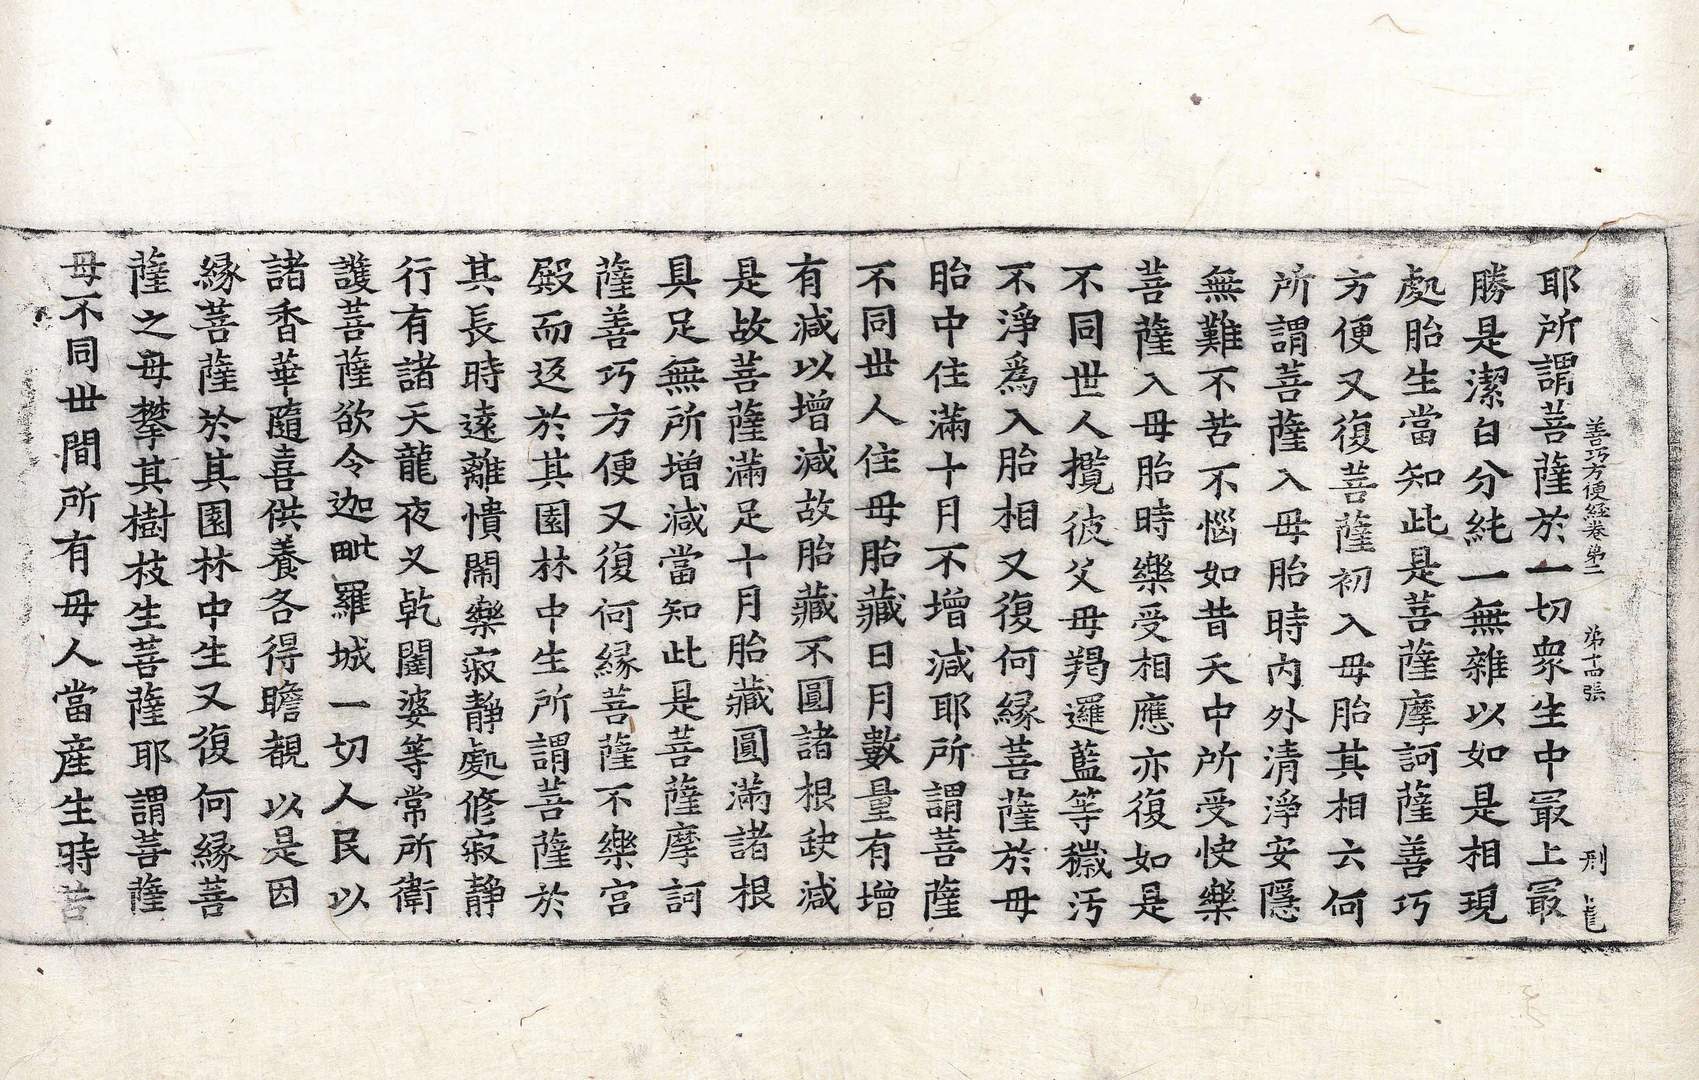 善巧方便經卷第二　第十四張　刑
耶所謂菩薩於一切衆生中冣上冣
勝是潔白分純一無雜以如是相現
處胎生當知此是菩薩摩訶薩善巧
方便又復菩薩初入母胎其相六何
所謂菩薩入母胎時內外清淨安隱
無難不苦不惱如昔天中所受快樂
菩薩入母胎時樂受相應亦復如是
不同世人攬彼父母羯邏藍等穢汚
不淨爲入胎相又復何緣菩薩於母
胎中住滿十月不增減耶所謂菩薩
不同世人住母胎藏日月數量有增
有減以增減故胎藏不圓諸根缺減
是故菩薩滿足十月胎藏圓滿諸根
具足無所增減當知此是菩薩摩訶
薩善巧方便又復何緣菩薩不樂宮
殿而返於其園林中生所謂菩薩於
其長時遠離憒閙樂寂靜處修寂靜
行有諸天龍夜叉乾闥婆等常所衛
護菩薩欲令迦毗羅城一切人民以
諸香華隨喜供養各得瞻覩以是因
緣菩薩於其園林中生又復何緣菩
薩之母攀其樹枝生菩薩耶謂菩薩
母不同世間所有母人當産生時苦